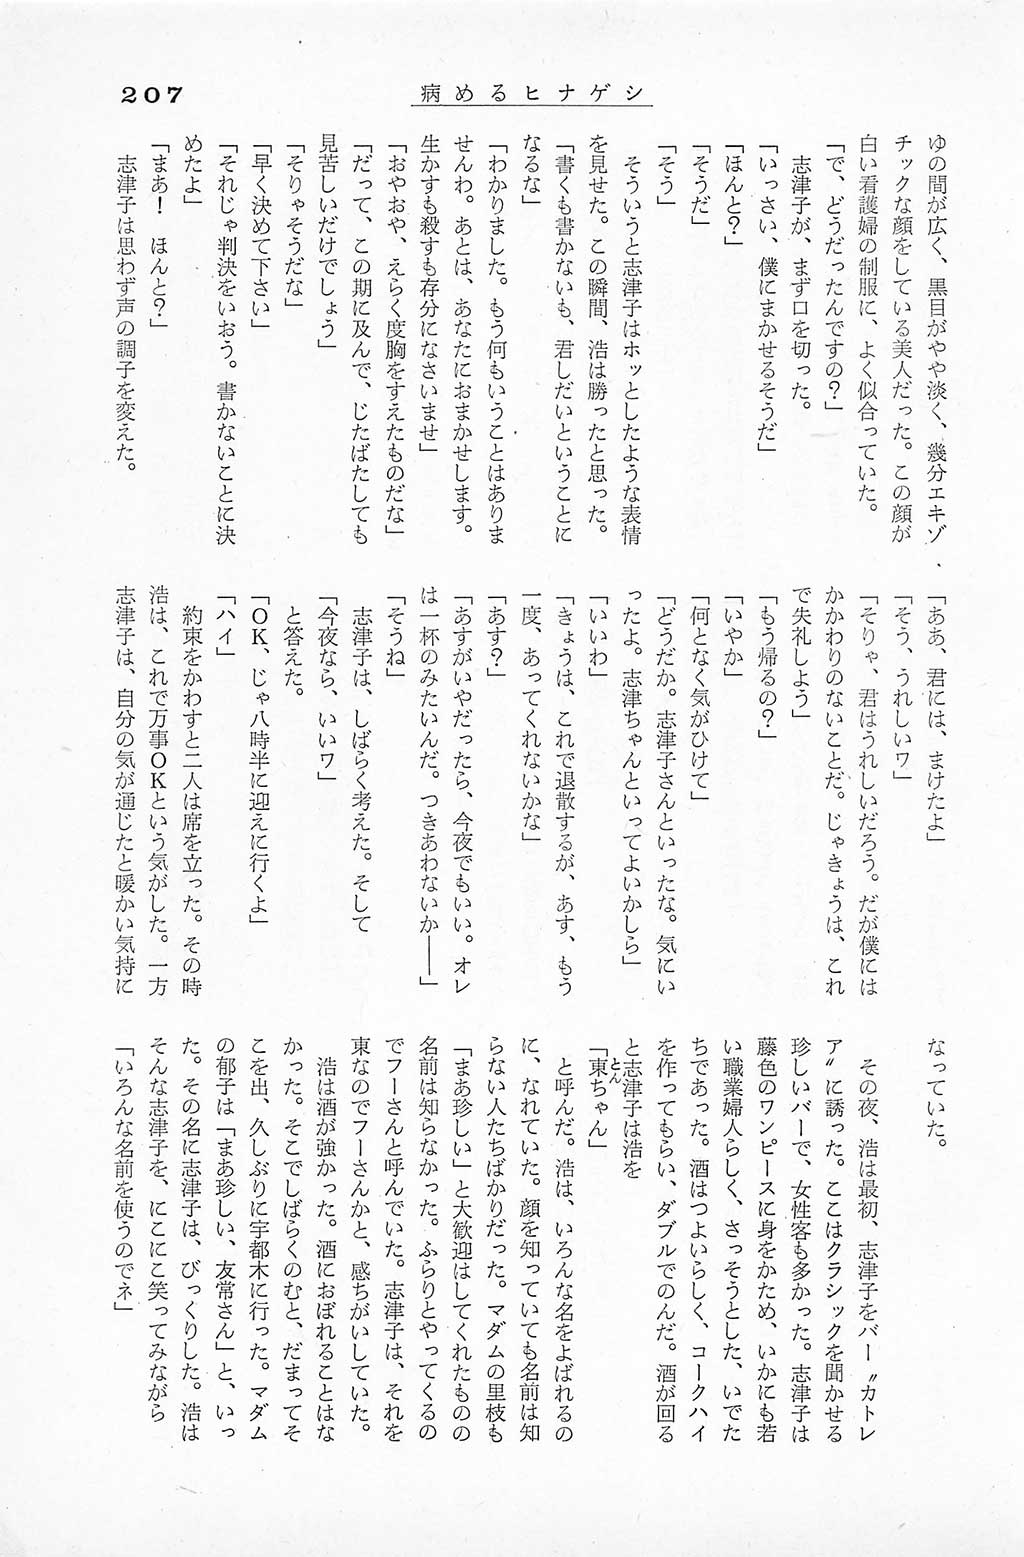 207
病めるヒナゲシ
ゆの間が広く、黒目がやや淡く、幾分エキゾ
チックな顔をしている美人だった。この顔が
白い看護婦の制服に、よく似合っていた。
「で、どうだったんですの？」
志津子が、まず口を切った。
「いっさい、僕にまかせるそうだ」
「ほんと？」
「そうだ」
「そう」
そういうと志津子はホッとしたような表情
を見せた。この瞬間、浩は勝ったと思った。
「書くも書かないも、君しだいということに
なるな」
「わかりました。もう何もいうことはありま
せんわ。あとは、あなたにおまかせします。
生かすも殺すも存分になさいませ」
「おやおや、えらく度胸をすえたものだな」
「だって、この期に及んで、じたばたしても
見苦しいだけでしょう」
「そりゃそうだな」
「早く決めて下さい」
「それじゃ判決をいおう。書かないことに決
めたよ」
「まあ！　ほんと？」
志津子は思わず声の調子を変えた。
「ああ、君には、まけたよ」
「そう、うれしいワ」
「そりゃ、君はうれしいだろう。だが僕には
かかわりのないことだ。じゃきょうは、これ
で失礼しよう」
「もう帰るの？」
「いやか」
「何となく気がひけて」
「どうだか。志津子さんといったな。気にい
ったよ。志津ちゃんといってよいかしら」
「いいわ」
「きょうは、これで退散するが、あす、もう
一度、あってくれないかな」
「あす？」
「あすがいやだったら、今夜でもいい。オレ
は一杯のみたいんだ。つきあわないか――」
「そうね」
志津子は、しばらく考えた。そして
「今夜なら、いいワ」
と答えた。
「OK、じゃ八時半に迎えに行くよ」
「ハイ」
約束をかわすと二人は席を立った。その時
浩は、これで万事OKという気がした。一方
志津子は、自分の気が通じたと暖かい気持に
なっていた。
その夜、浩は最初、志津子をバー〝カトレ
ア〟に誘った。ここはクラシックを聞かせる
珍しいバーで、女性客も多かった。志津子は
藤色のワンピースに身をかため、いかにも若
い職業婦人らしく、さっそうとした、いでた
ちであった。酒はつよいらしく、コークハイ
を作ってもらい、ダブルでのんだ。酒が回る
と志津子は浩を
「東ちゃん」
とん
と呼んだ。浩は、いろんな名をよばれるの
に、なれていた。顔を知っていても名前は知
らない人たちばかりだった。マダムの里枝も
「まあ珍しい」と大歓迎はしてくれたものの
名前は知らなかった。ふらりとやってくるの
でフーさんと呼んでいた。志津子は、それを
東なのでフーさんかと、感ちがいしていた。
浩は酒が強かった。酒におぼれることはな
かった。そこでしばらくのむと、だまってそ
こを出、久しぶりに宇都木に行った。マダム
の郁子は「まあ珍しい、友常さん」と、いっ
た。その名に志津子は、びっくりした。浩は
そんな志津子を、にこにこ笑ってみながら
「いろんな名前を使うのでネ」